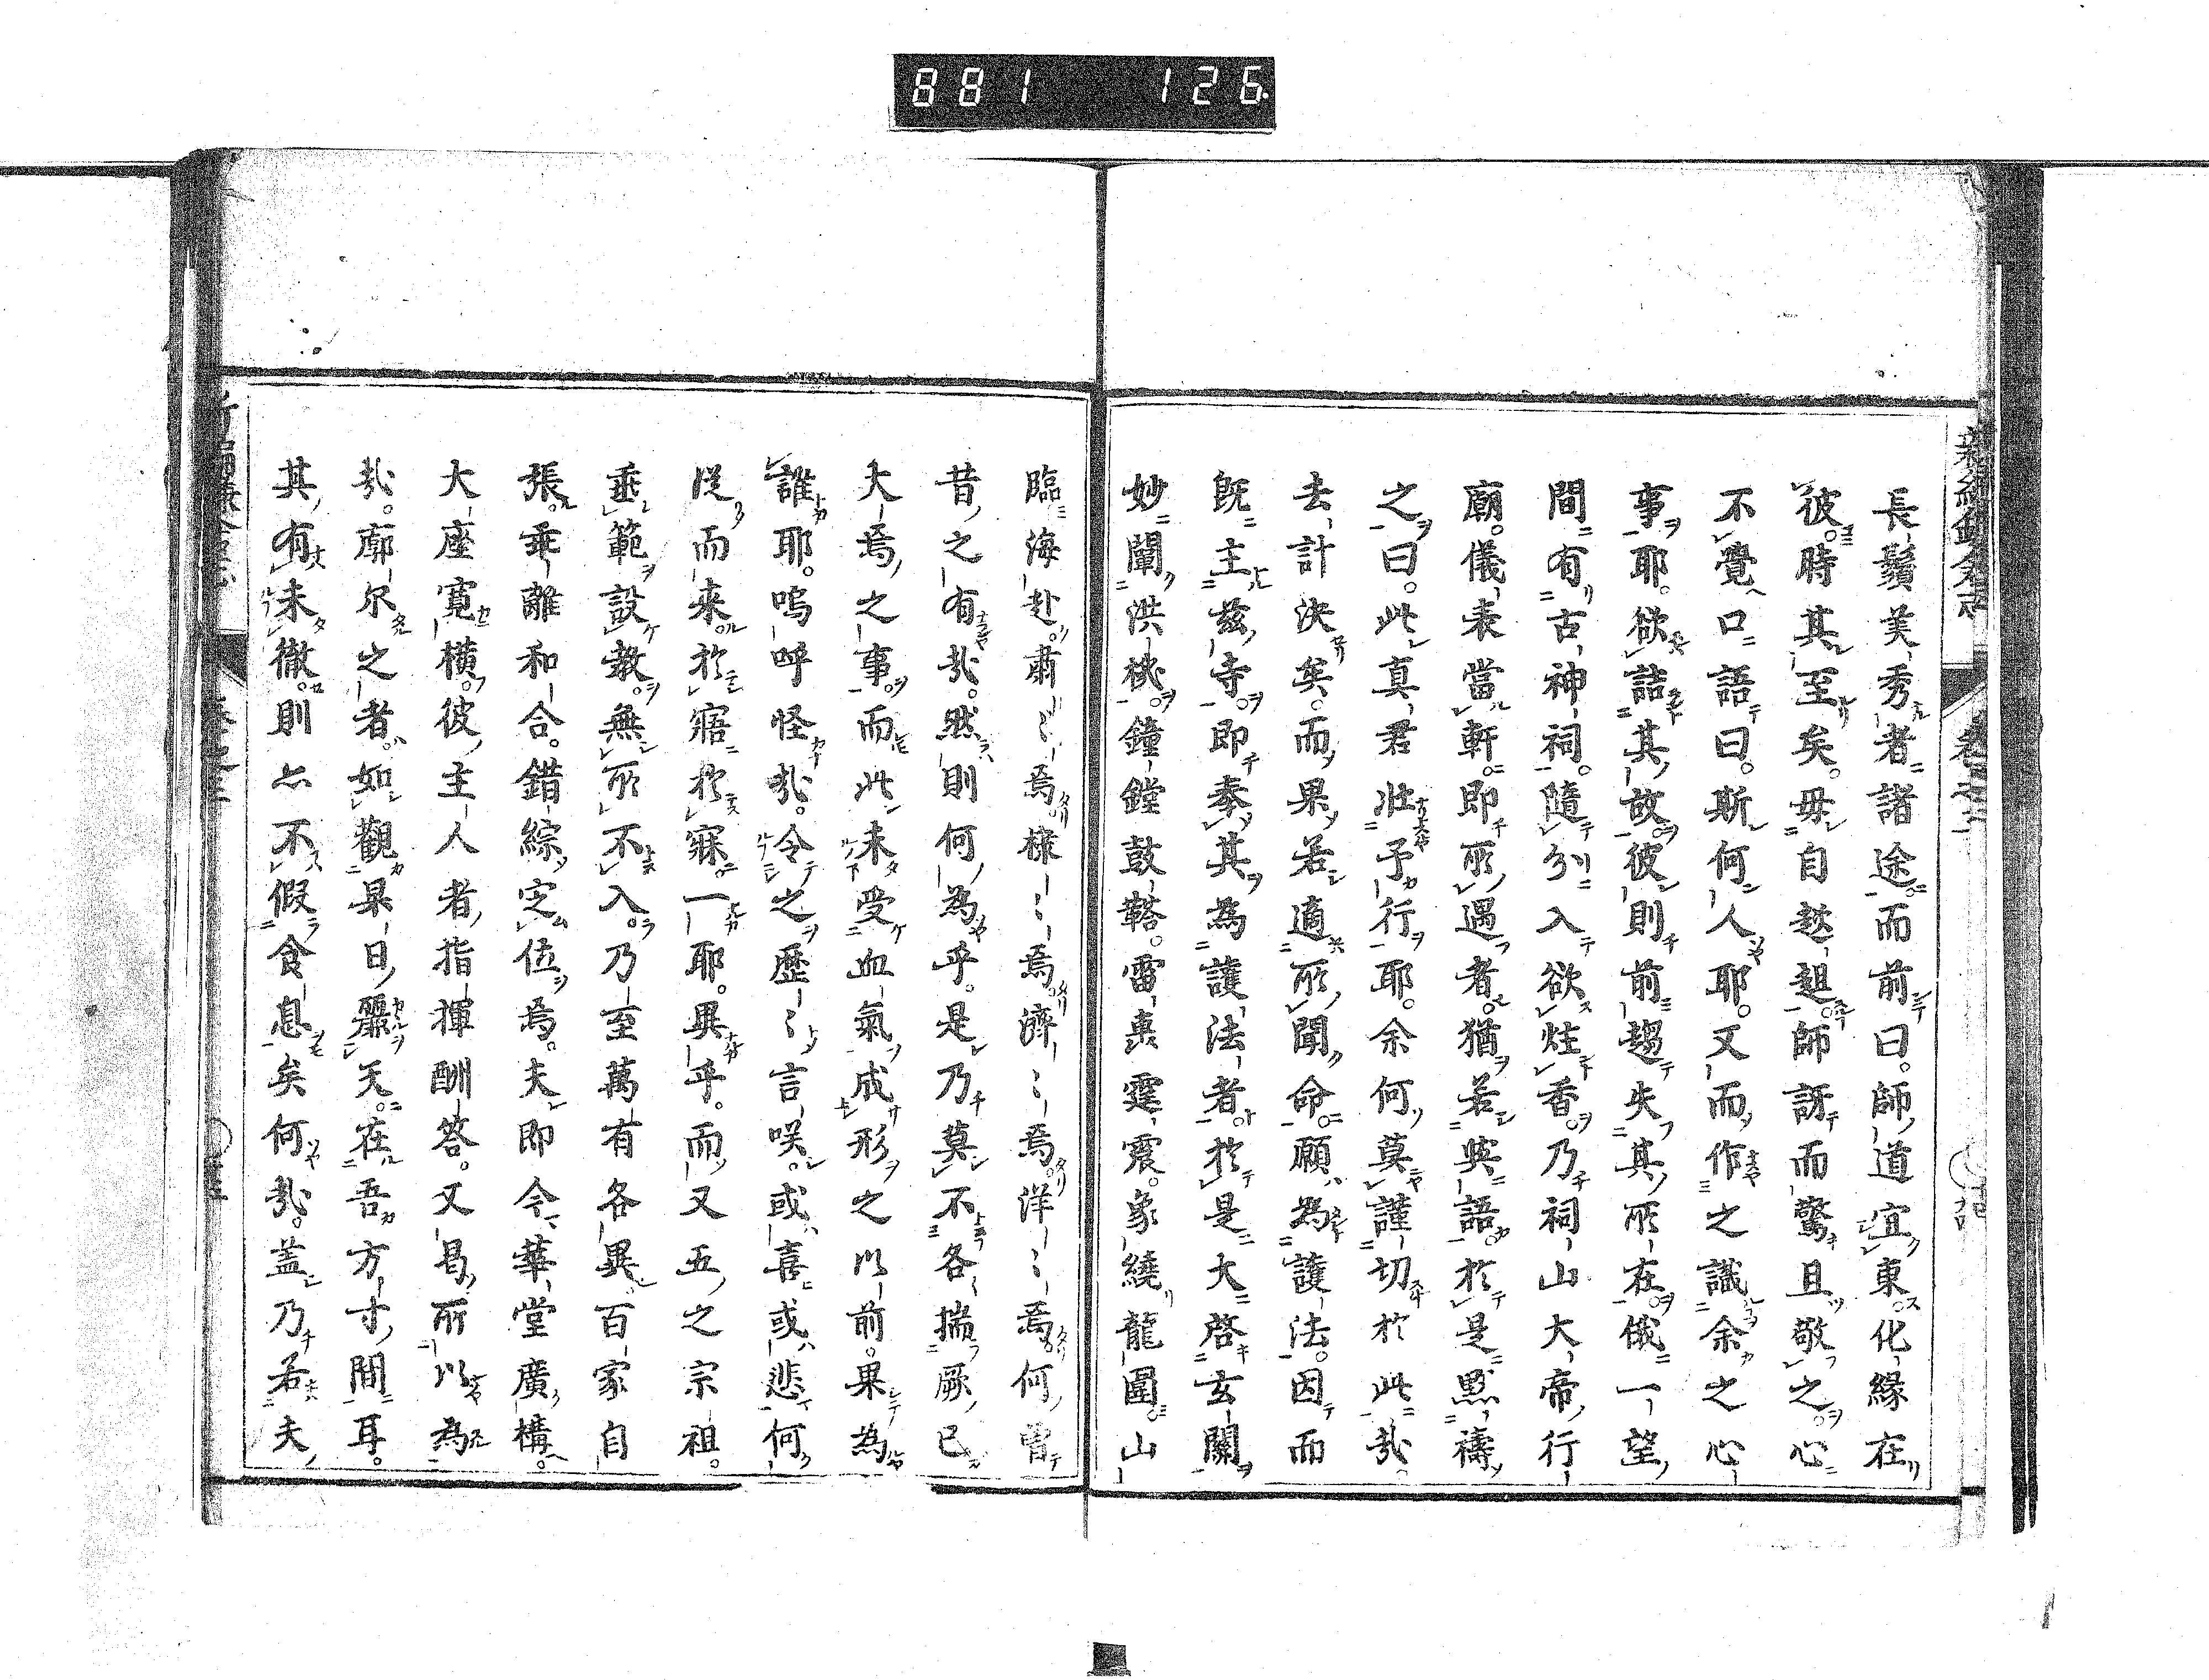 881 126
長鬚美秀者諸途而前曰。師道宜東。化緣在
彼。時其至矣。毋自趑趄。師訝而驚且敬之。心
不覺口語曰。斯何人耶。又而作之識余之心
事耶。欲詰其故。彼則前趨失其所在。俄一望
間有古神祠。隨列入欲炷香。乃祠山大帝行
廟。儀表當軒。即所遇者。猶若與語。於是默禱
之曰。此真君壯予行耶。余何莫謹切於此哉。
去計決矣。而果若適所聞命。願為護法。因而
既主茲寺。即奉其為護法者。於是大啓玄關
妙闡洪樞。鐘鏜鼓鞳。雷轟霆震。象繞龍圍。山
臨海赴。肅〻焉。穆〻焉。濟〻焉。洋〻焉。何曾
昔之有哉。然則何為乎。是乃莫不各揣厥己
大焉之事。而此未受血氣成形之以前。果為
誰耶。嗚呼怪哉。令之歷〻言咲。或喜或悲。何
従而來。於寤於寐。一耶。異乎。而又五之宗祖。
垂範設教。無所不入。乃至萬有各異。百家自
張。乖離和合。錯綜定位焉。夫即今華堂廣構。
大座寬橫。彼主人者。指揮酬答。又曷所以為
哉。廓尔之者。如觀杲日麗天。在吾方寸間耳。
其有未徹。則亦不假食息矣何哉。盖乃若夫